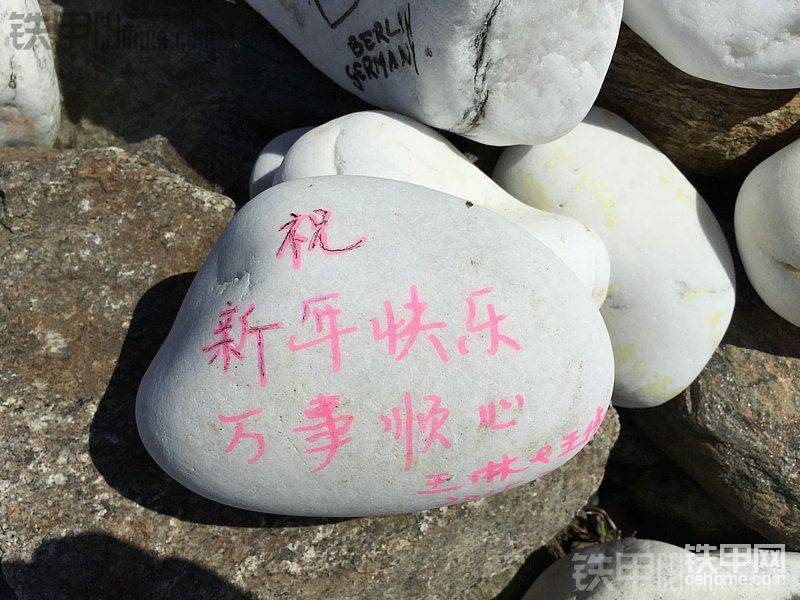 BERLIN
GERMANY
祝
新年快乐
万事顺心
铁甲网
cehome.com